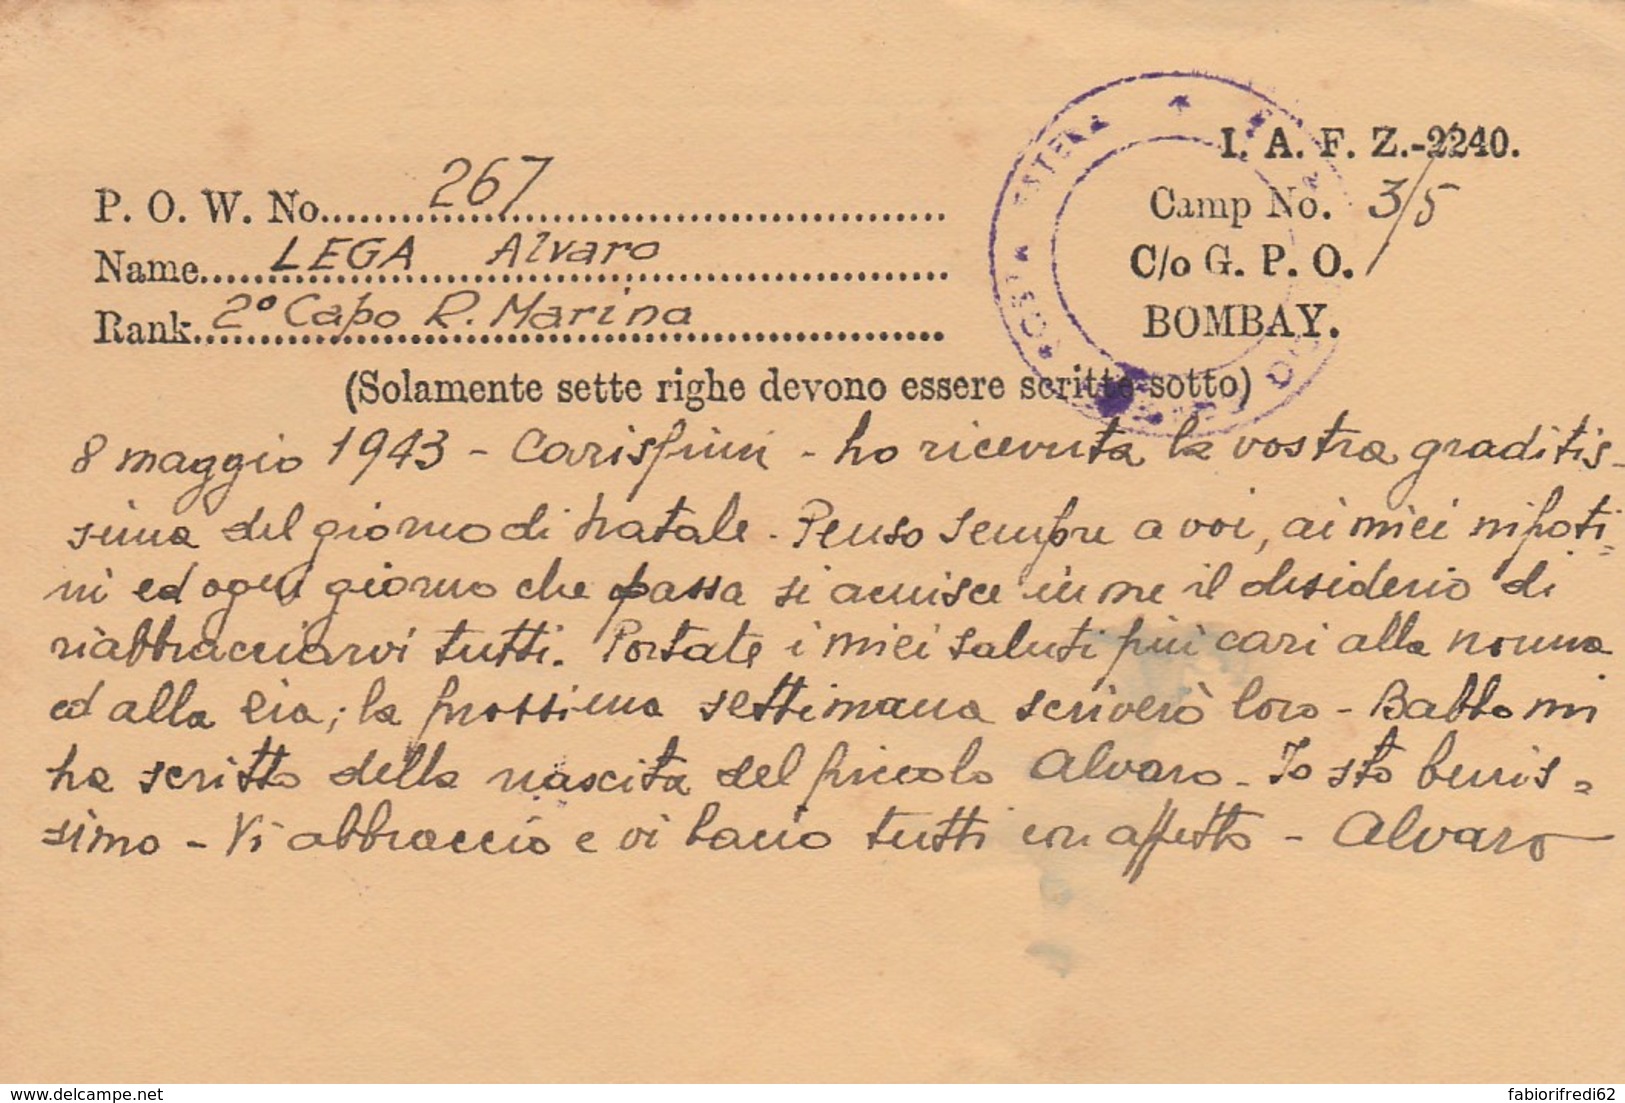 I. A. F. Z.-2240.
P. O. W. No. 267
Camp No. 3/5
Name LEGA Alvaro
C/o G. P. O.
Rank 2° Capo R. Marina
BOMBAY.
POSTA ESTERA
(Solamente sette righe devono essere scritte sotto)
8 maggio 1943 - Carissimi - ho ricevuta la vostra graditis-
sima del giorno di Natale. Penso sempre a voi, ai miei nipoti-
ni ed ogni giorno che passa si acuisce in me il desiderio di
riabbracciarvi tutti. Portate i miei saluti più cari alla nonna
ed alla zia; la prossima settimana scriverò loro - Babbo mi
ha scritto della nascita del piccolo Alvaro - Io sto benis-
simo - Vi abbraccio e vi bacio tutti con affetto - Alvaro
delcampe.net
fabiorifredi62